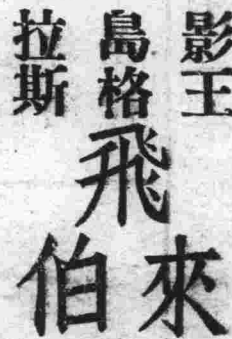 影王
島格
拉斯
飛
來伯